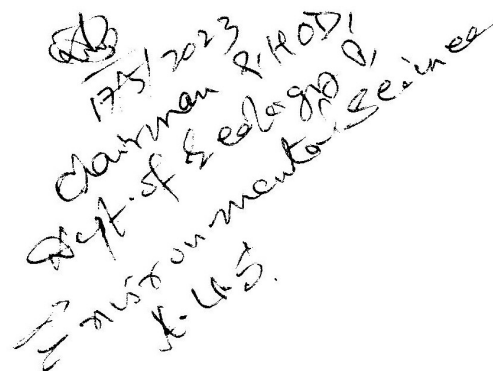 17/5/2023
Chairman & HOD,
Dept. of Ecology &
Environmental Science
A.U.S.